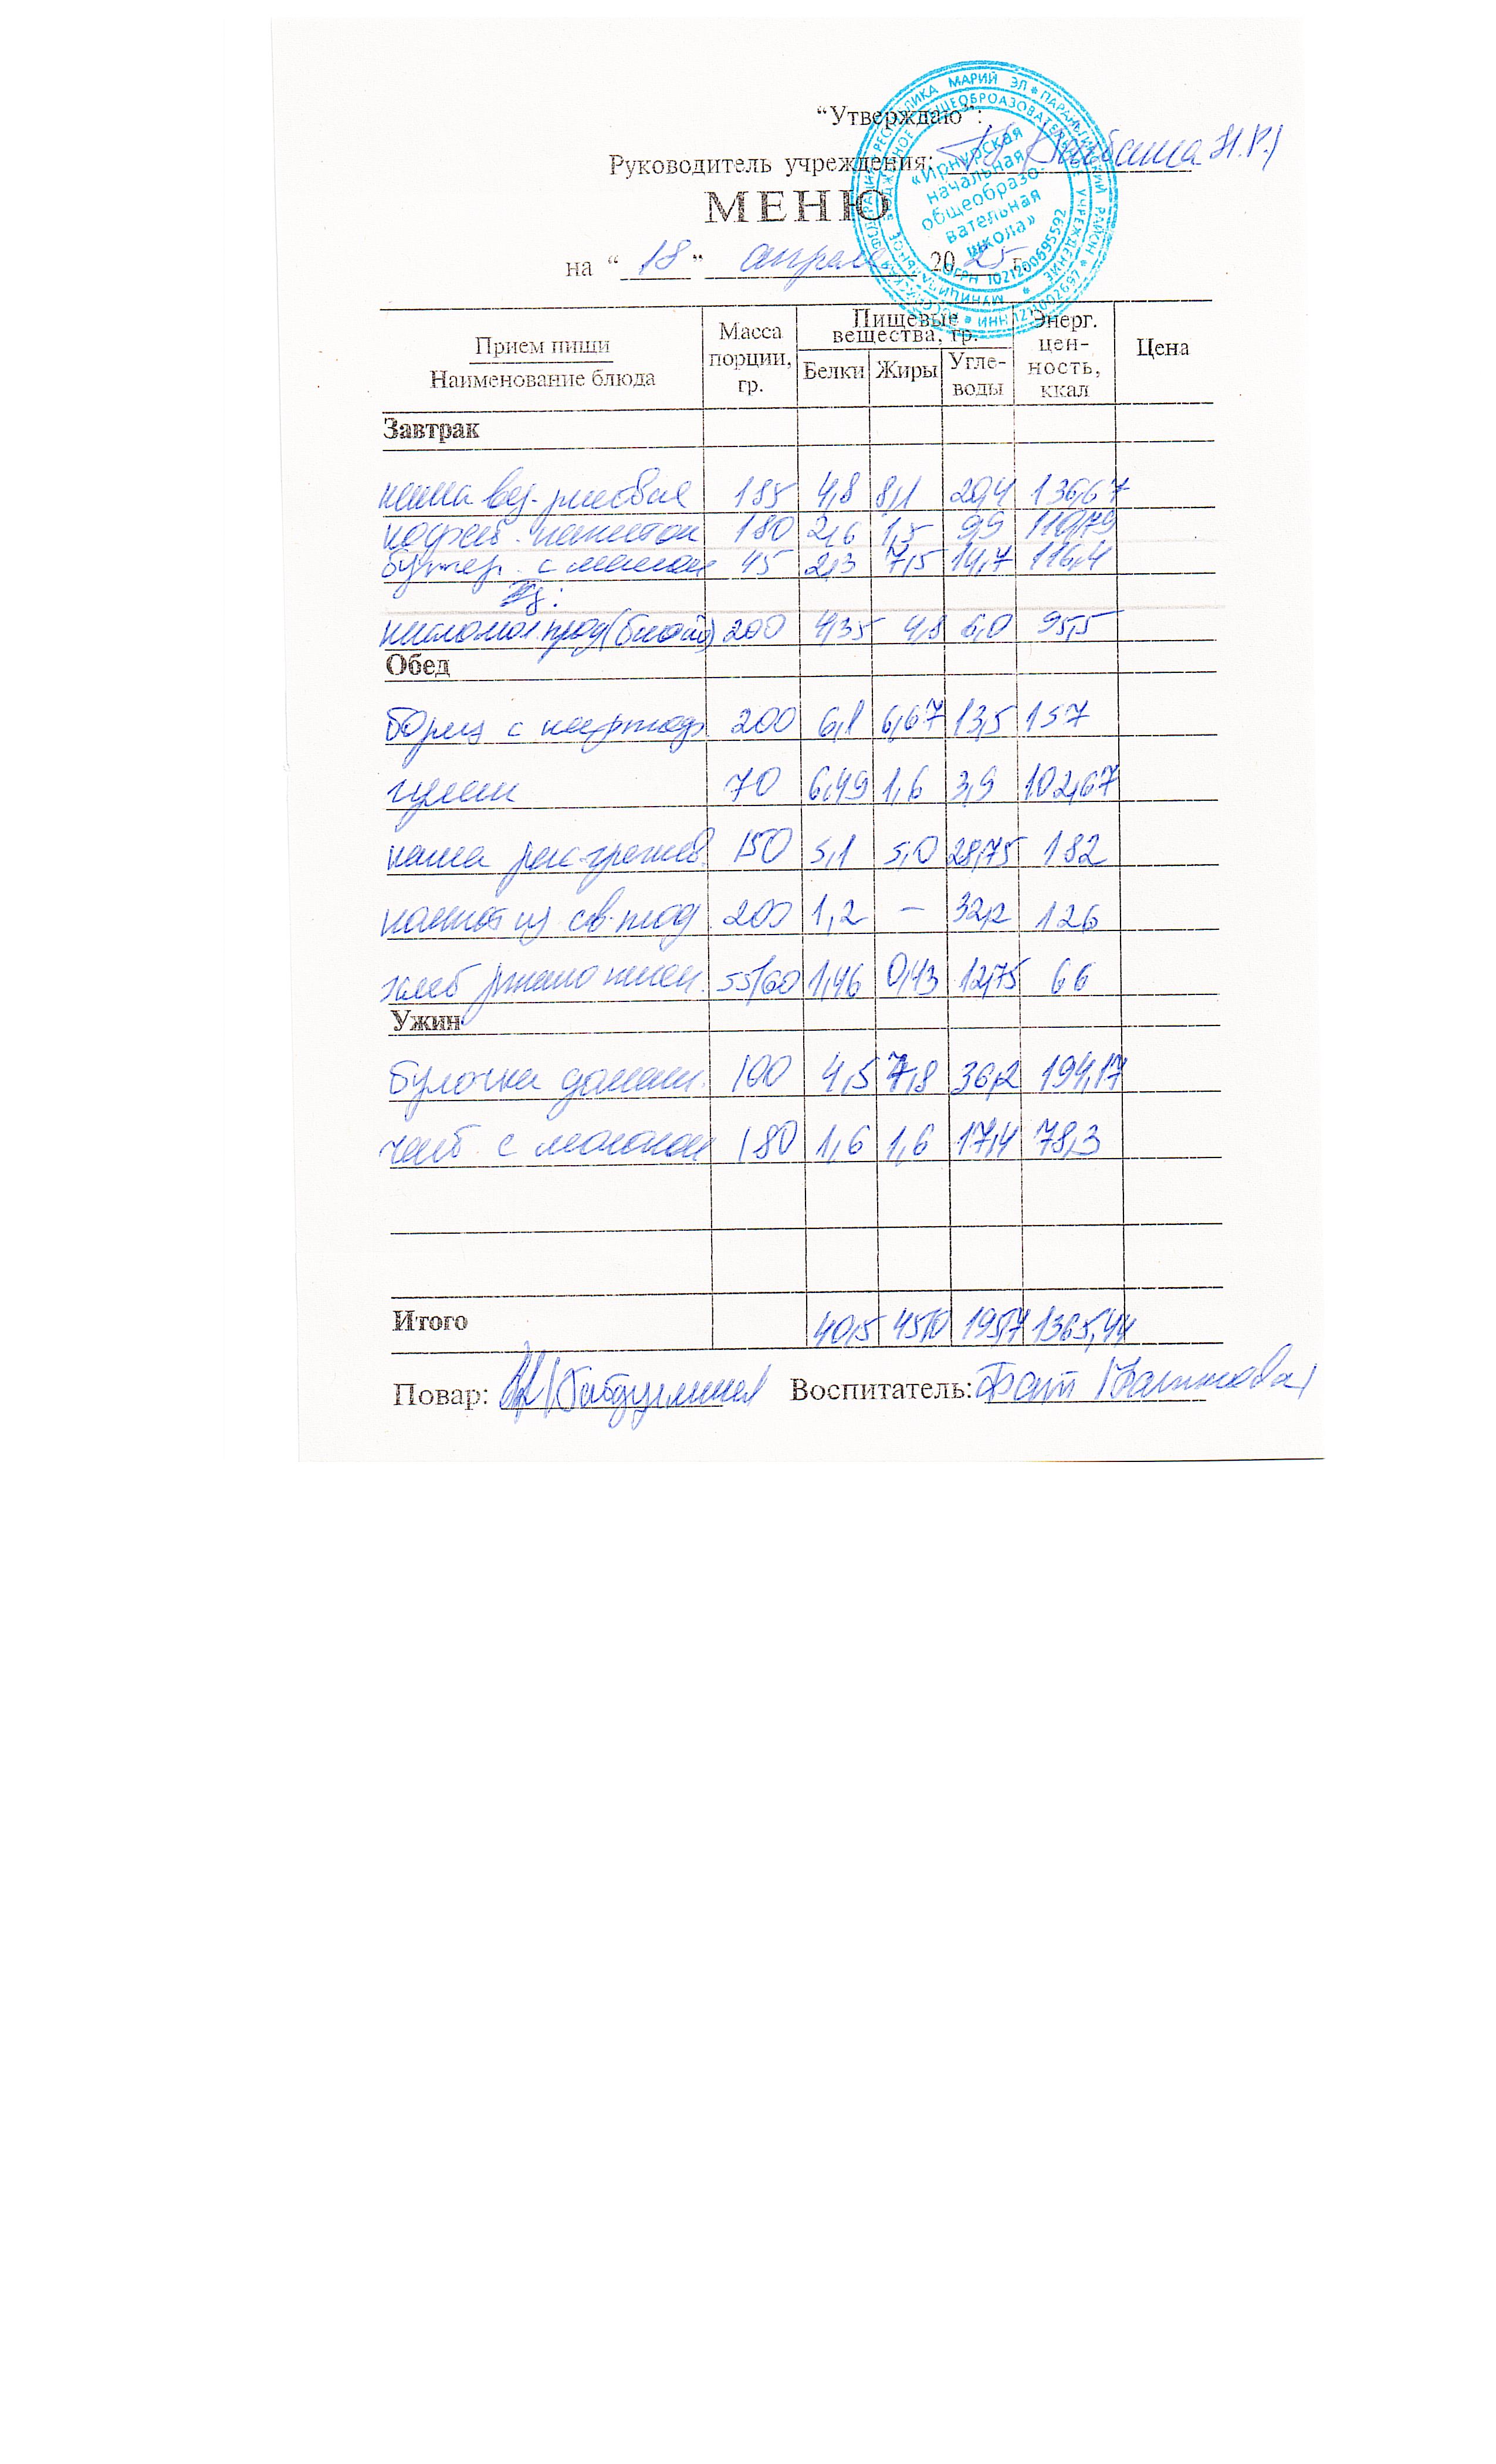 “Утверждаю”:
Руководитель учреждения:
МЕНЮ
на “ 18 ” апреля 20 25 г.
РЕСПУБЛИКА МАРИЙ ЭЛ * ПАРАНЬГИНСКИЙ РАЙОН *
ИНН 1211002697
ОГРН 1021200695592
«Ирнурская
начальная
общеобразо-
вательная
школа»
Прием пищи
Наименование блюда
Масса порции, гр.
Пищевые вещества, гр.
Белки Жиры Угле-воды
Энерг. цен-ность, ккал
Цена
Завтрак
каша вяз. рисовая 185 4,8 8,1 20,4 136,67
кофейн. напиток 180 2,6 1,5 9,9 110,79
бутер. с маслом 45 2,3 7,5 14,7 116,4
кисломол. прод 200 4,35 4,8 6,0 95,5
Обед
борщ с картоф 200 6,1 6,67 13,5 157
гуляш 70 6,49 1,6 3,9 102,67
каша рас. гречнев. 150 5,1 5,0 28,75 182
компот из св. плод 200 1,2 – 32,2 126
хлеб ржано пшен. 55/60 1,46 0,43 12,75 66
Ужин
булочка домаш. 100 4,5 7,8 36,2 194,17
чай с молоком 180 1,6 1,6 17,4 78,3
Итого 40,5 45,0 195,7 1365,44
Повар: Воспитатель: